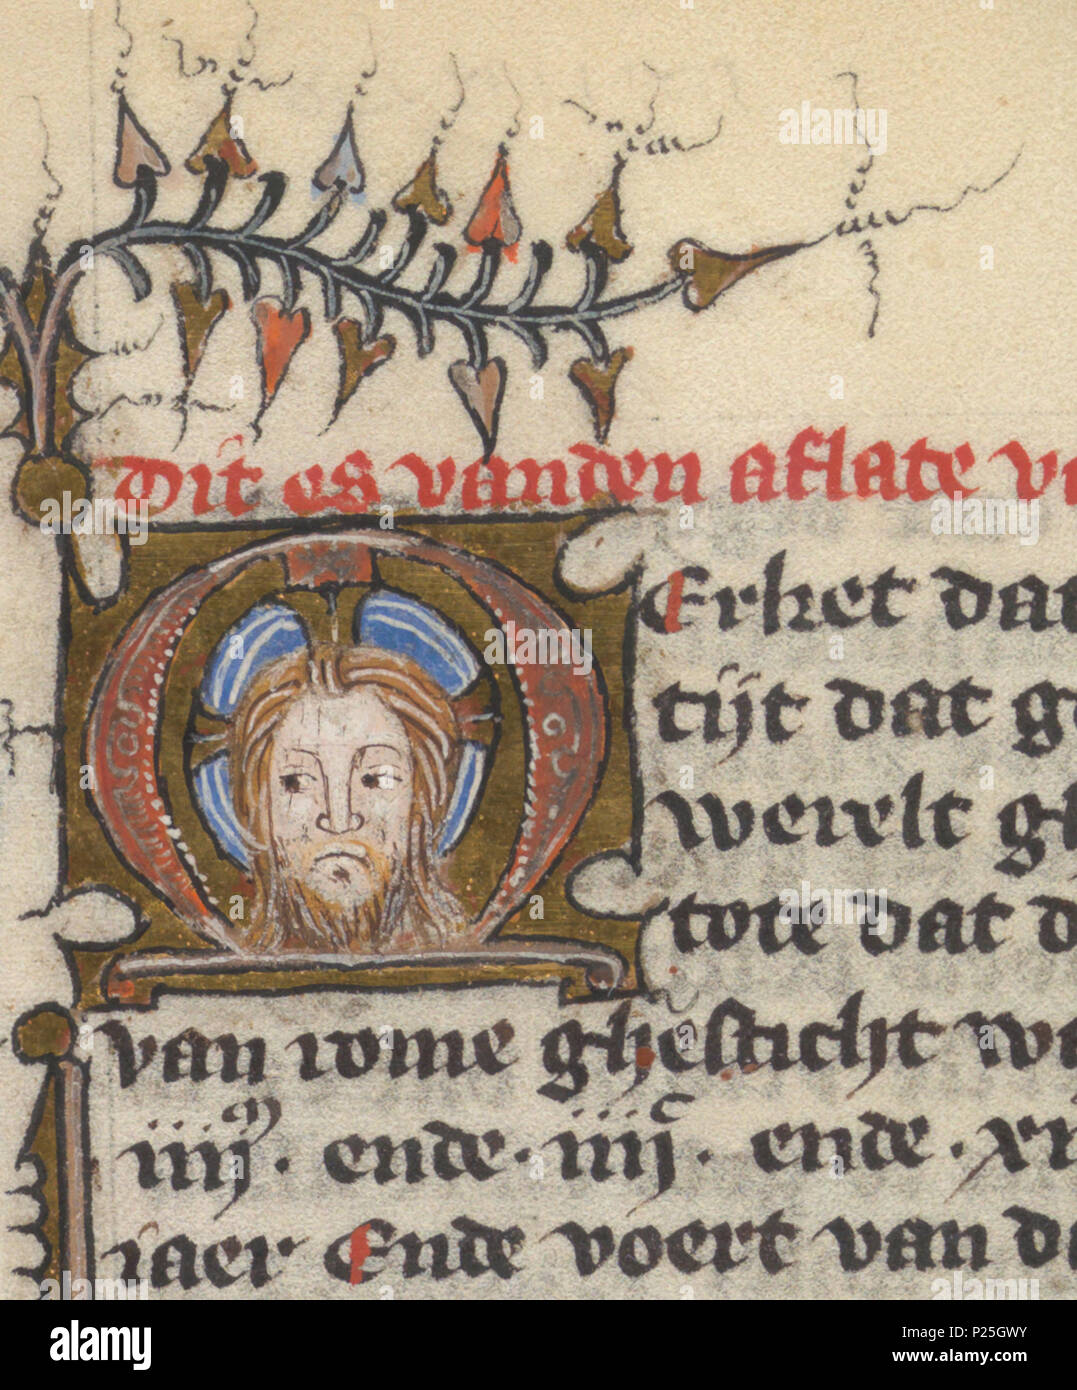 Dit es vanden aflate v
Erket dat
tijt dat g
werelt gh
tote dat d
van rome ghesticht w
iiijᵐ. ende. iiijᶜ. ende. x
iaer Ende voert van d
alamy
alamy
Image ID: P25GWY
www.alamy.com